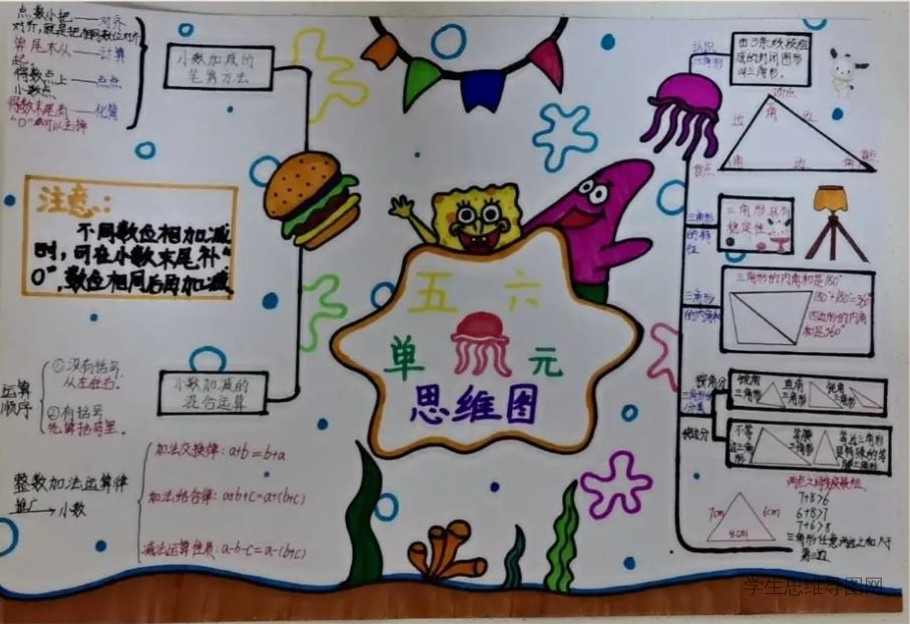 点数小把——对齐
对齐,就是把相同数位对齐
算尾末从——计算
起。
得数点上——点点
小数点
得数末尾有——化简
"0"可以去掉
小数加减的
笔算方法
注意:
不同数位相加减
时,可在小数末尾补"
0",数位相同后再加减
运算
顺序
①没有括号,
从左往右.
②有括号
先算括号里.
小数加减的
混合运算
整数加法运算律
推广→小数
加法交换律:a+b=b+a
加法结合律:a+b+c=a+(b+c)
减法运算性质:a-b-c=a-(b+c)
五 六
单 元
思维图
认识
三角形
由3条线段组
成的封闭图形
叫三角形.
顶点
边 角 边
角 边 角
顶点
三角形
的特
性
三角形具有
稳定性
三角形
的内角和
三角形的内角和是180°
180°+180°=360°
四边形的内角
和是360°
三角形的
分类
按角分
锐角
三角形
直角
三角形
钝角
三角形
按边分
不等
边三角
形
等腰
三角形
等边三角形
是特殊的等
腰三角形
两点之间线段最短.
7cm
6cm
8cm
7+8>6
6+8>7
7+6>8
三角形任意两边之和大于
第三边
学生思维导图网